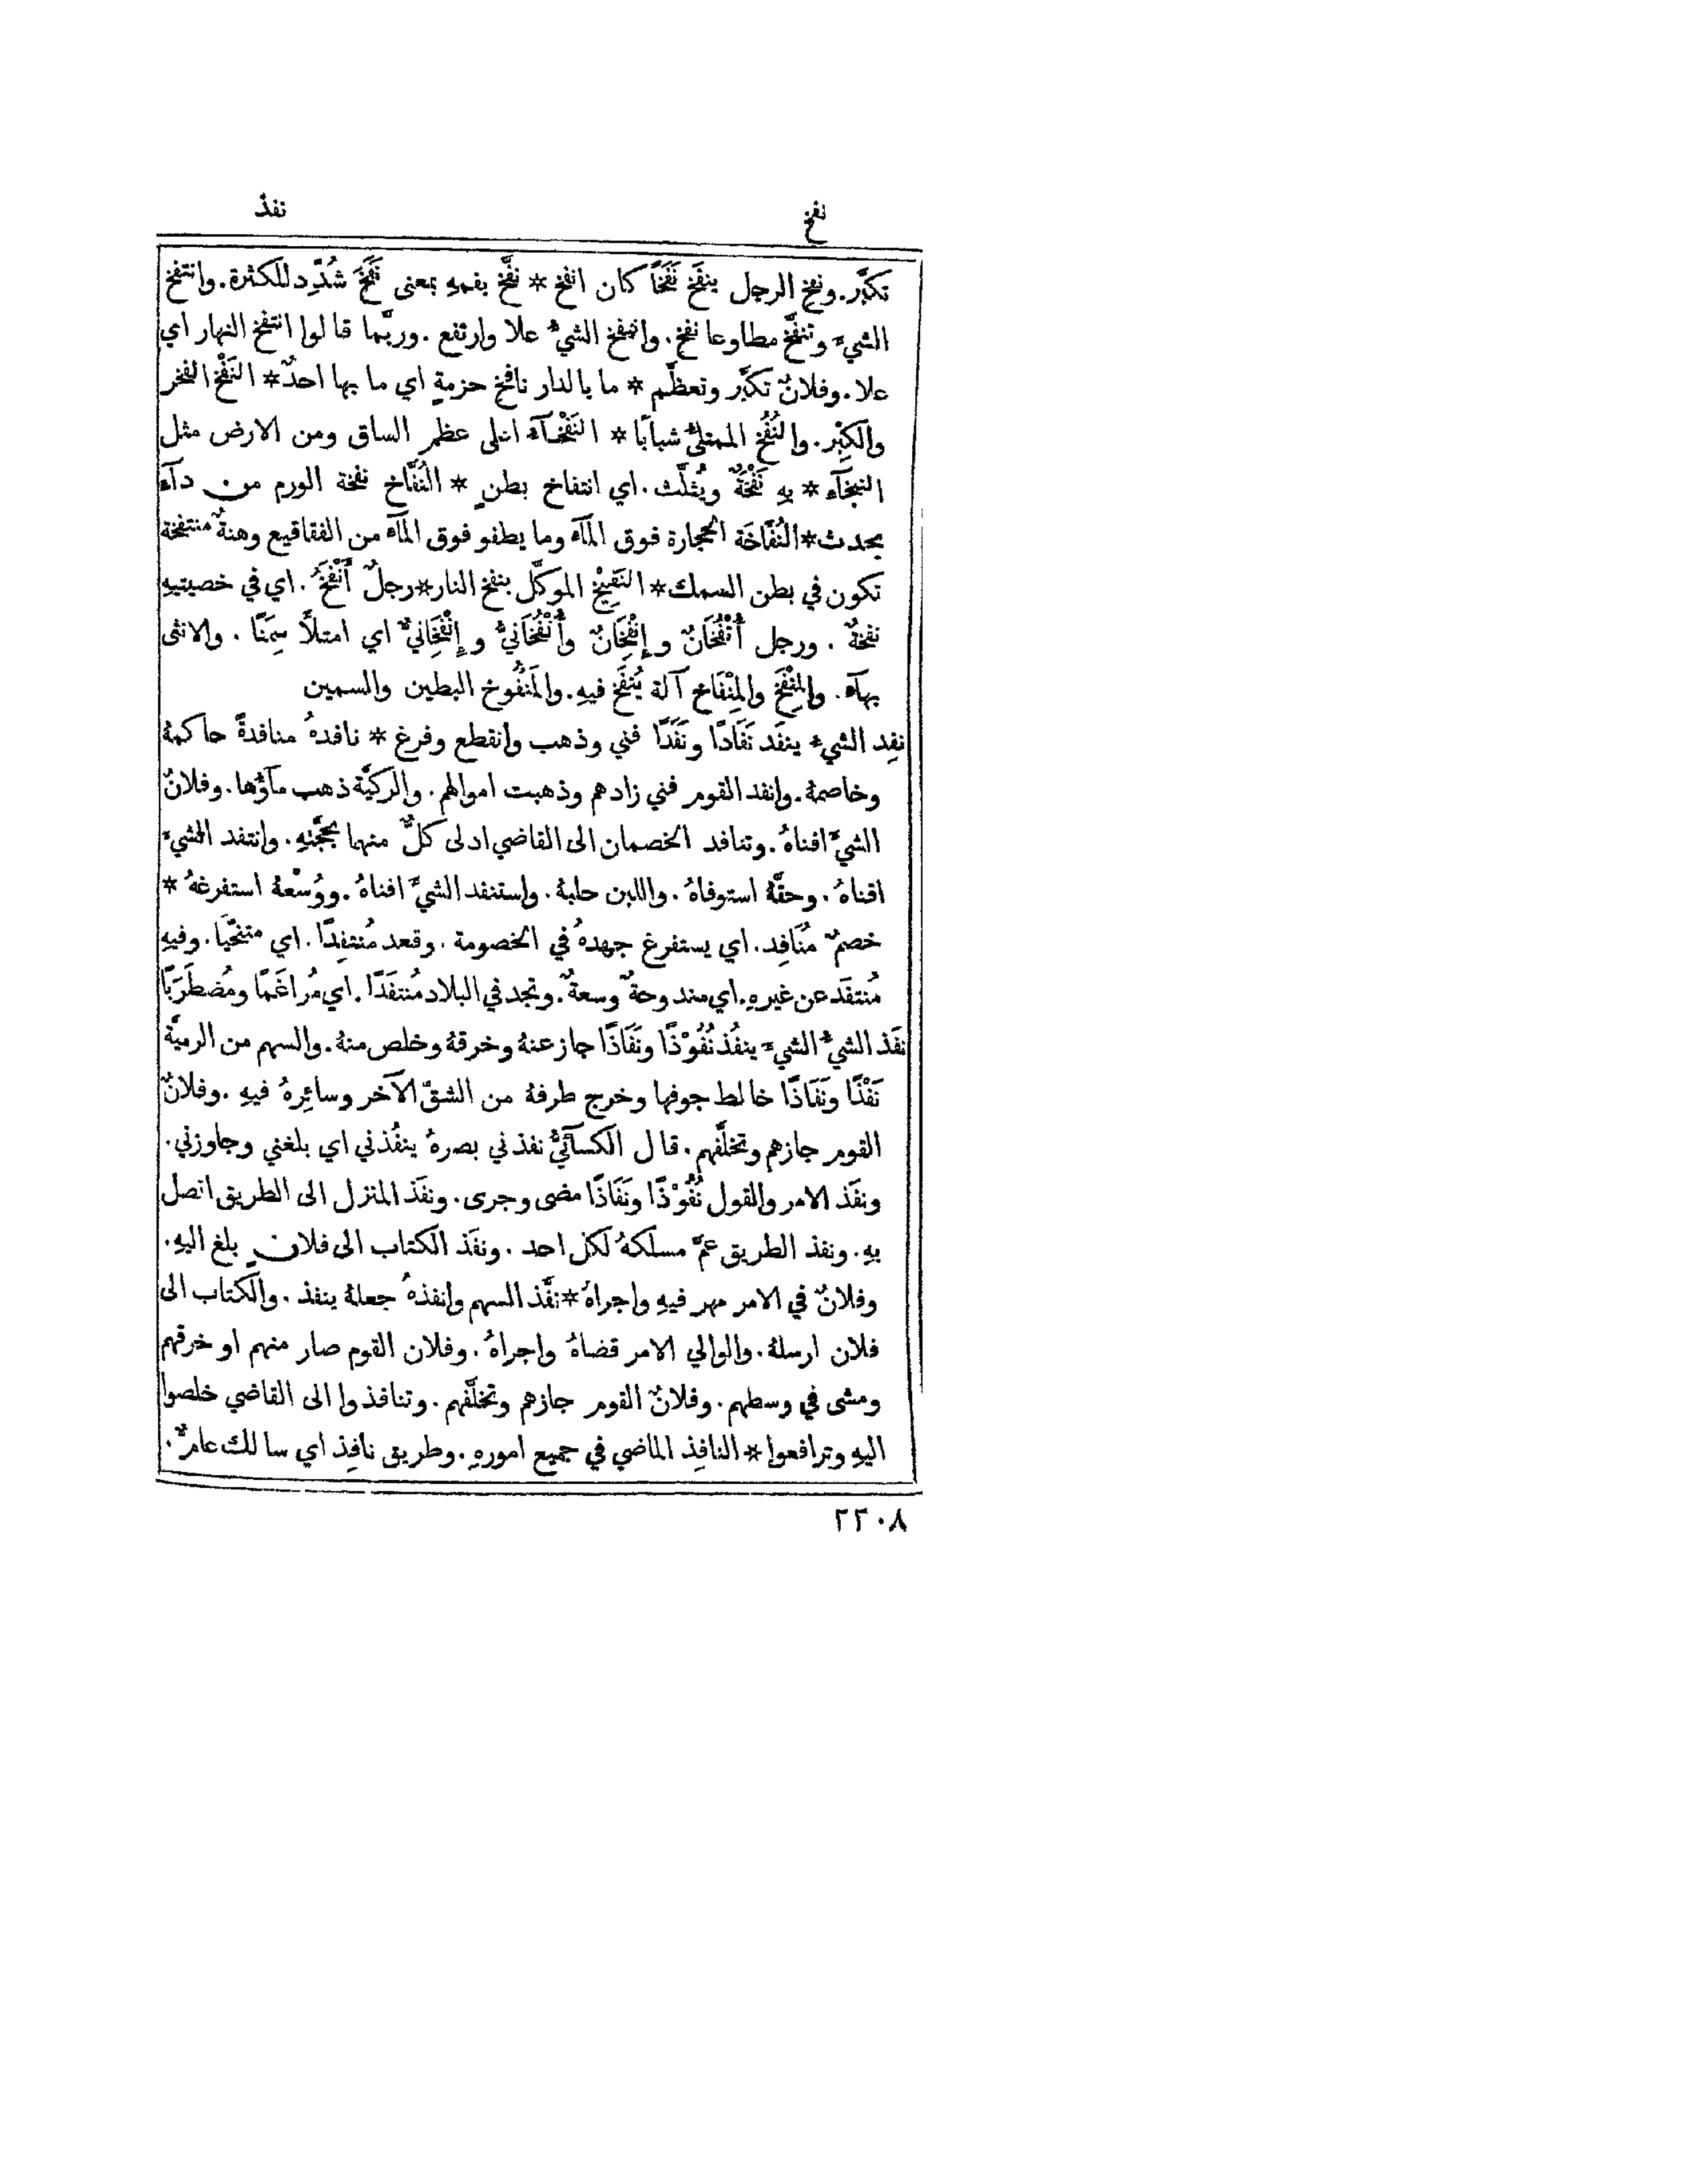 نفخ
نفذ
تكبَّر. ونفخ الرجل ينفَخ نَفَخًا كان انفخ * نفَّخ بفمهِ بمعنى نَفَخَ شُدِّد للكثرة. وانتفخ
الشيءَ وتنفَّخ مطاوعا نفخ. وانتفخ الشيءُ علا وارتفع. وربَّما قالوا انتفخ النهار اي
علا. وفلانٌ تكبَّر وتعظَّم * ما بالدار نافخ حزمةٍ اي ما بها احدٌ * النَفْخ الفخر
والكِبْر. والنُفُخ الممتلئُ شبابًا * النَفْخَآءُ اعلى عظم الساق ومن الارض مثل
النبخآء * بهِ نَفْخَةٌ ويُثلَّث. اي انتفاخ بطنٍ * النُفَّاخ نفخة الورم من دآءٍ
يحدث * النُفَّاخَة الحجارة فوق المآءِ وما يطفو فوق المآءِ من الفقاقيع وهنةٌ منتفخة
تكون في بطن السمك * النَفِيْخ الموكَّل بنفخ النار * رجلٌ أَنْفَخُ. اي في خصيتيهِ
نفخةٌ. ورجل أُنْفُخَانٌ وإِنْفِخَانٌ وأُنْفُخَانيٌّ وإِنْفِخَانيٌّ اي امتلأَ سِمَنًا. والانثى
بهآءٍ. والمِنْفَخ والمِنْفَاخ آلة يُنفَخ فيهِ. والمَنْفُوخ البطين والسمين
نفِد الشيءُ ينفَد نَفَادًا ونَفَدًا فني وذهب وانقطع وفرغ * نافدهُ منافدةً حاكمهُ
وخاصمهُ. وانفد القوم فني زادهم وذهبت اموالهم. والركيَّة ذهب مآؤُها. وفلانٌ
الشيءَ افناهُ. وتنافد الخصمان الى القاضي ادلى كلٌّ منهما بحجَّتهِ. وانتفد الشيءَ
افناهُ. وحقَّهُ استوفاهُ. واللبن حلبهُ. واستنفد الشيءَ افناهُ. ووُسْعهُ استفرغهُ *
خصمٌ مُنَافِد. اي يستفرغ جهدهُ في الخصومة. وقعد مُنتفِدًا. اي متنحّيًا. وفيهِ
مُنتفَد عن غيرهِ. اي مندوحةٌ وسعةٌ. وتجد في البلاد مُنتفَدًا. اي مُراغَمًا ومُضطَرَبًا
نفَذ الشيءُ الشيءَ ينفُذ نُفُوْذًا ونَفَاذًا جاز عنهُ وخرقهُ وخلص منهُ. والسهم من الرميَّة
نَفْذًا ونَفَاذًا خالط جوفها وخرج طرفهُ من الشقّ الآخر وسائِرهُ فيهِ. وفلانٌ
القوم جازهم وتخلَّفهم. قال الكسآئيُّ نفذني بصرهُ ينفُذني اي بلغني وجاوزني.
ونفَذ الامر والقول نُفُوْذًا ونَفَاذًا مضى وجرى. ونفَذ المنزل الى الطريق اتصل
بهِ. ونفذ الطريق عمَّ مسلكهُ لكل احد. ونفَذ الكتاب الى فلانٍ بلغ اليهِ.
وفلانٌ في الامر مهر فيهِ واجراهُ * نفَّذ السهم وانفذهُ جعلهُ ينفذ. والكتاب الى
فلان ارسلهُ. والوالي الامر قضاهُ واجراهُ. وفلان القوم صار منهم او خرقهم
ومشى في وسطهم. وفلانٌ القوم جازهم وتخلَّفهم. وتنافذوا الى القاضي خلصوا
اليهِ وترافعوا * النافِذ الماضي في جميع امورهِ. وطريق نافِذ اي سالك عامٌّ.
٢٢٠٨